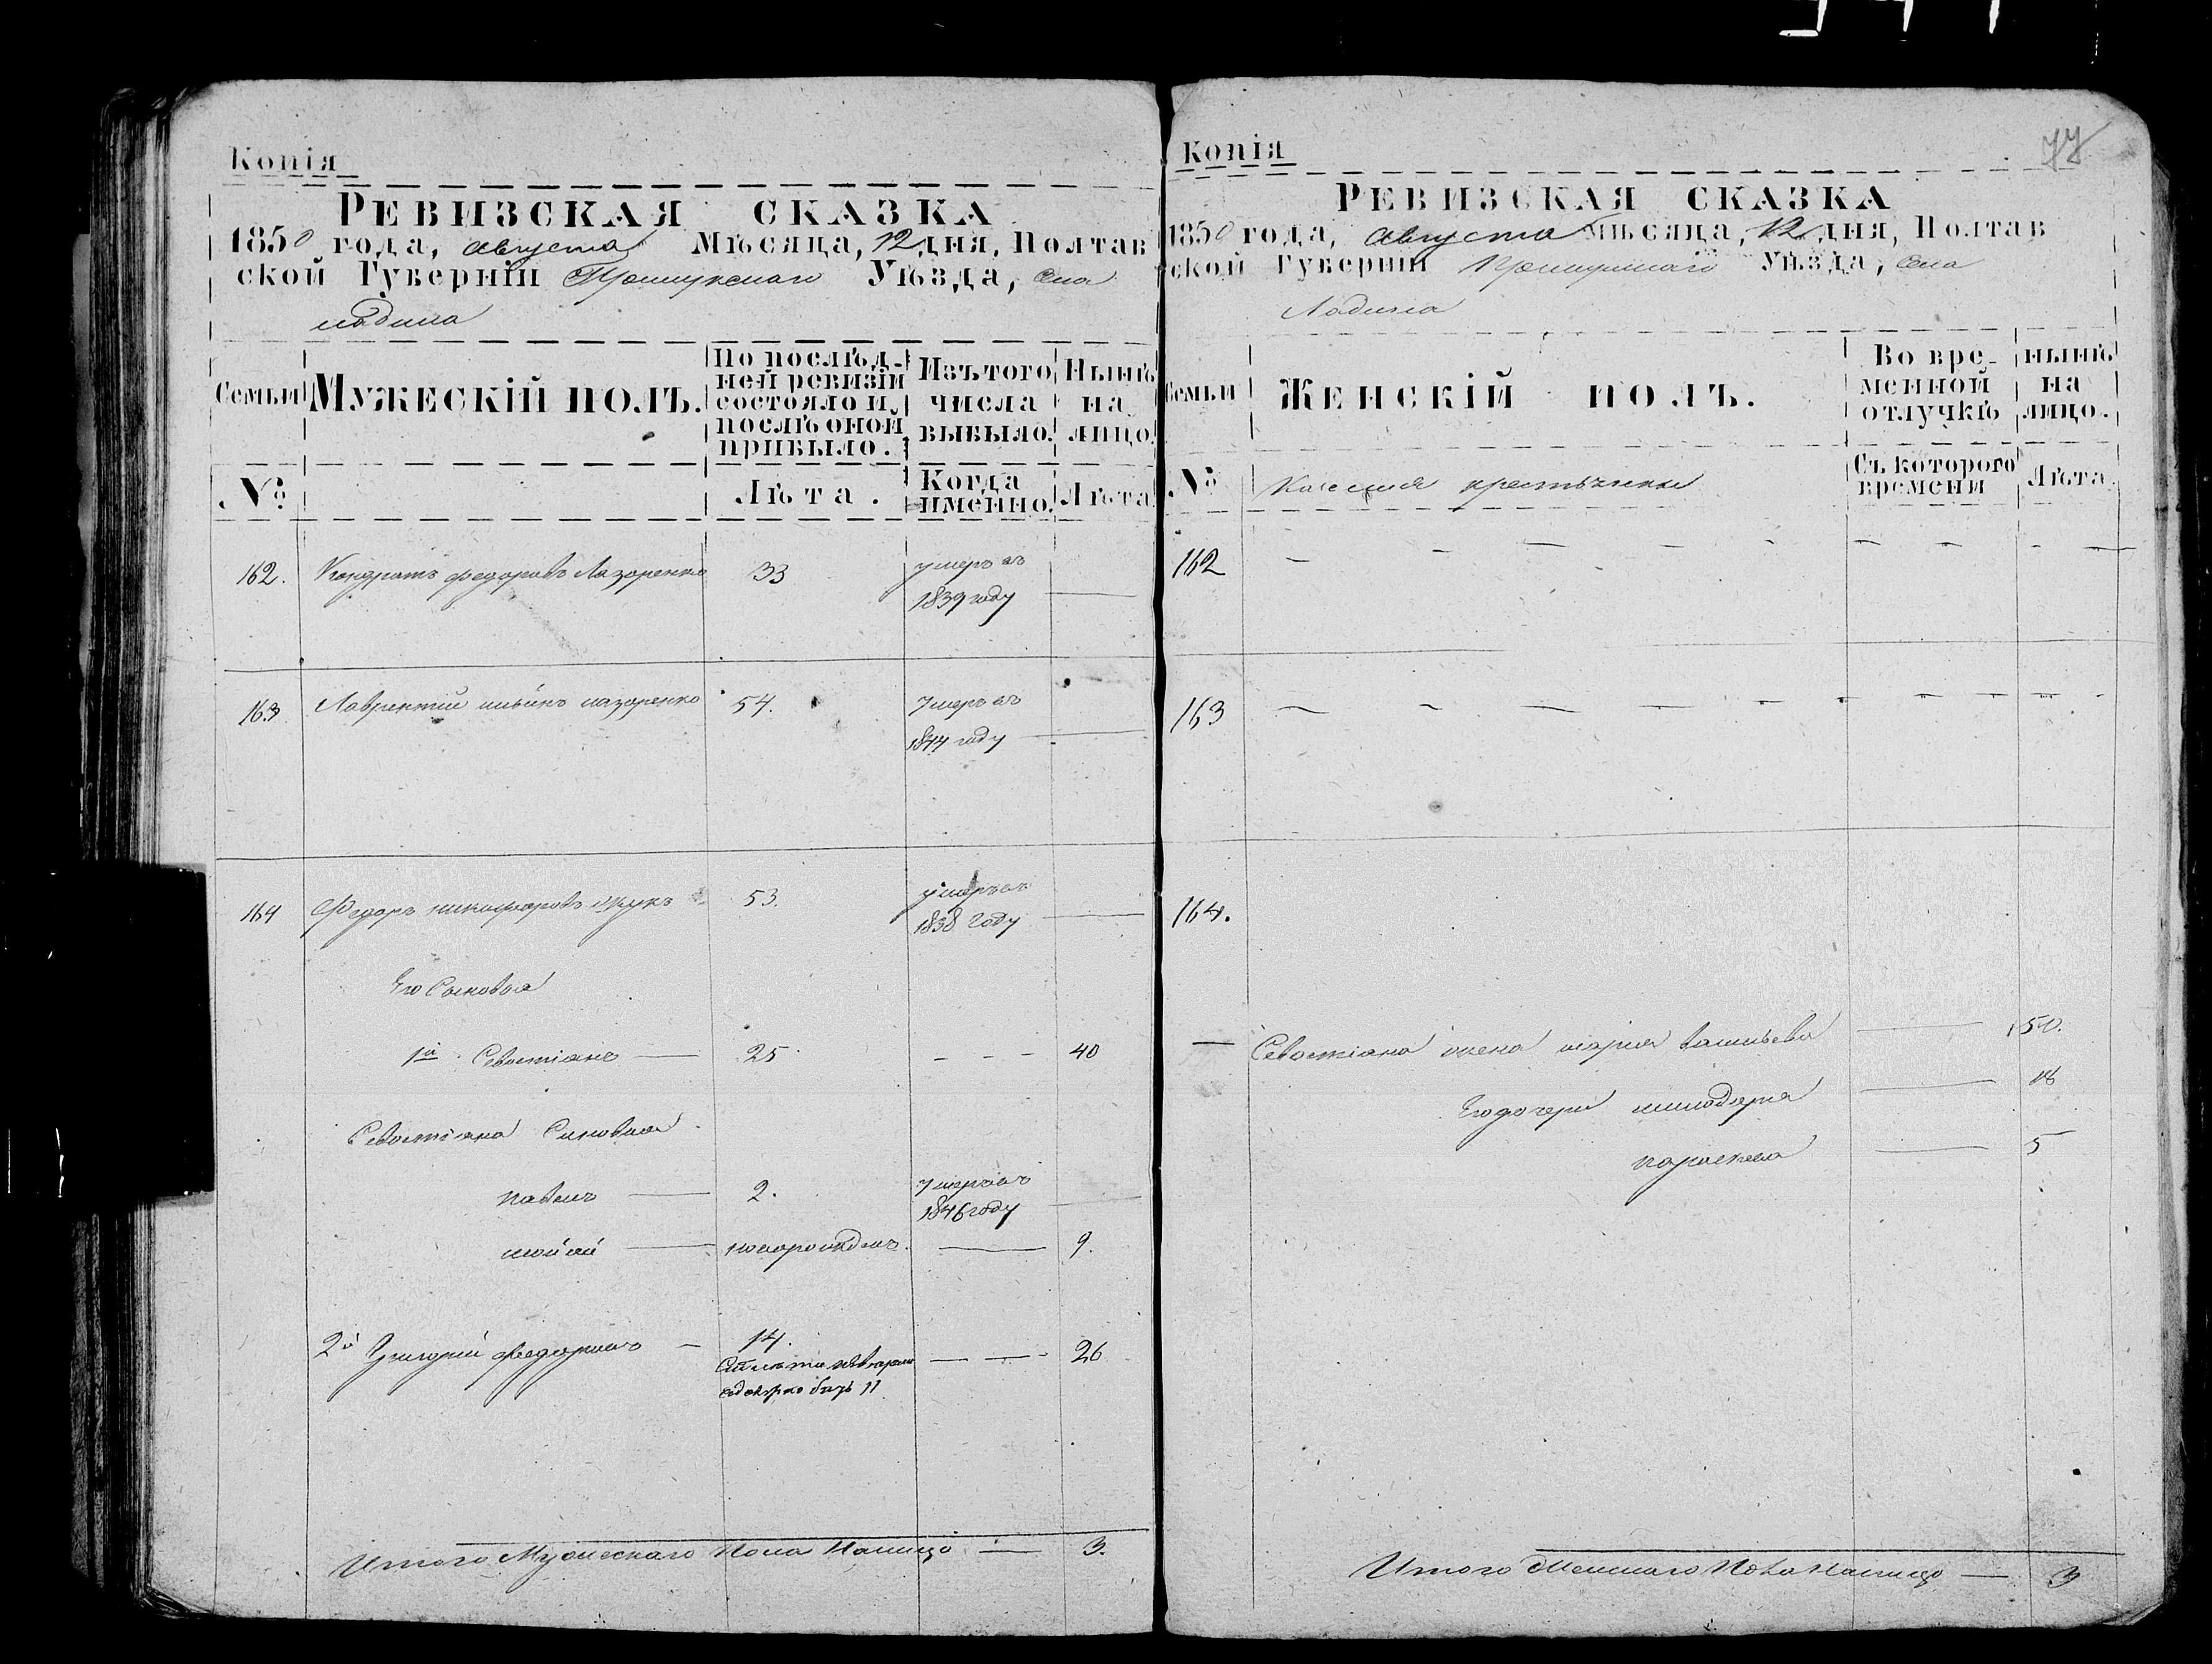 Копія
РЕВИЗСКАЯ СКАЗКА
1850 года, августа Мѣсяца, 12 дня, Полтав
ской Губерніи Прилукскаго Уѣзда, села
ладина
Семьи
МУЖЕСКІЙ ПОЛЪ.
По послѣд-
ней ревизіи
состояло и
послѣ оной
прибыло.
Изъ того
числа
выбыло.
Нынѣ
на
лицо.
№
Лѣта.
Когда
именно.
Лѣта
162. Кондратъ федоровъ Лазоренко 33 умеръ въ
1839 году —
163. Лаврентий ильинъ лазоренко 54. умеръ въ
1844 году —
164 Федоръ никифоровъ жукъ 53. умеръ въ
1838 году —
Его Сыновья
1й Севостіанъ — 25 - - - 40
Севостіана Сыновья
павелъ — 2. умеръ въ
1846 году —
мойсей — новорожденъ. — 9.
2й Григорий федоровъ — 14.
— — - 26
Итого Мужескаго Пола Налицо — 3.
Копія
77
РЕВИЗСКАЯ СКАЗКА
1850 года, августа мѣсяца, 12 дня, Полтав
ской Губерніи Прилукскаго Уѣзда, села
Ладина
Семьи
ЖЕНСКІЙ ПОЛЪ.
Во вре-
менной
отлучкѣ
нынѣ
на
лицо.
№
Казенные крестьянки
Съ которого
времени
Лѣта.
162 — - — - - - - - - - -
163 — - — — - - - - - - -
164.
— Севостіана жена марія васильева — 50.
Его дочери — 18
параскева — 5
Итого Женскаго Пола Налицо — 3